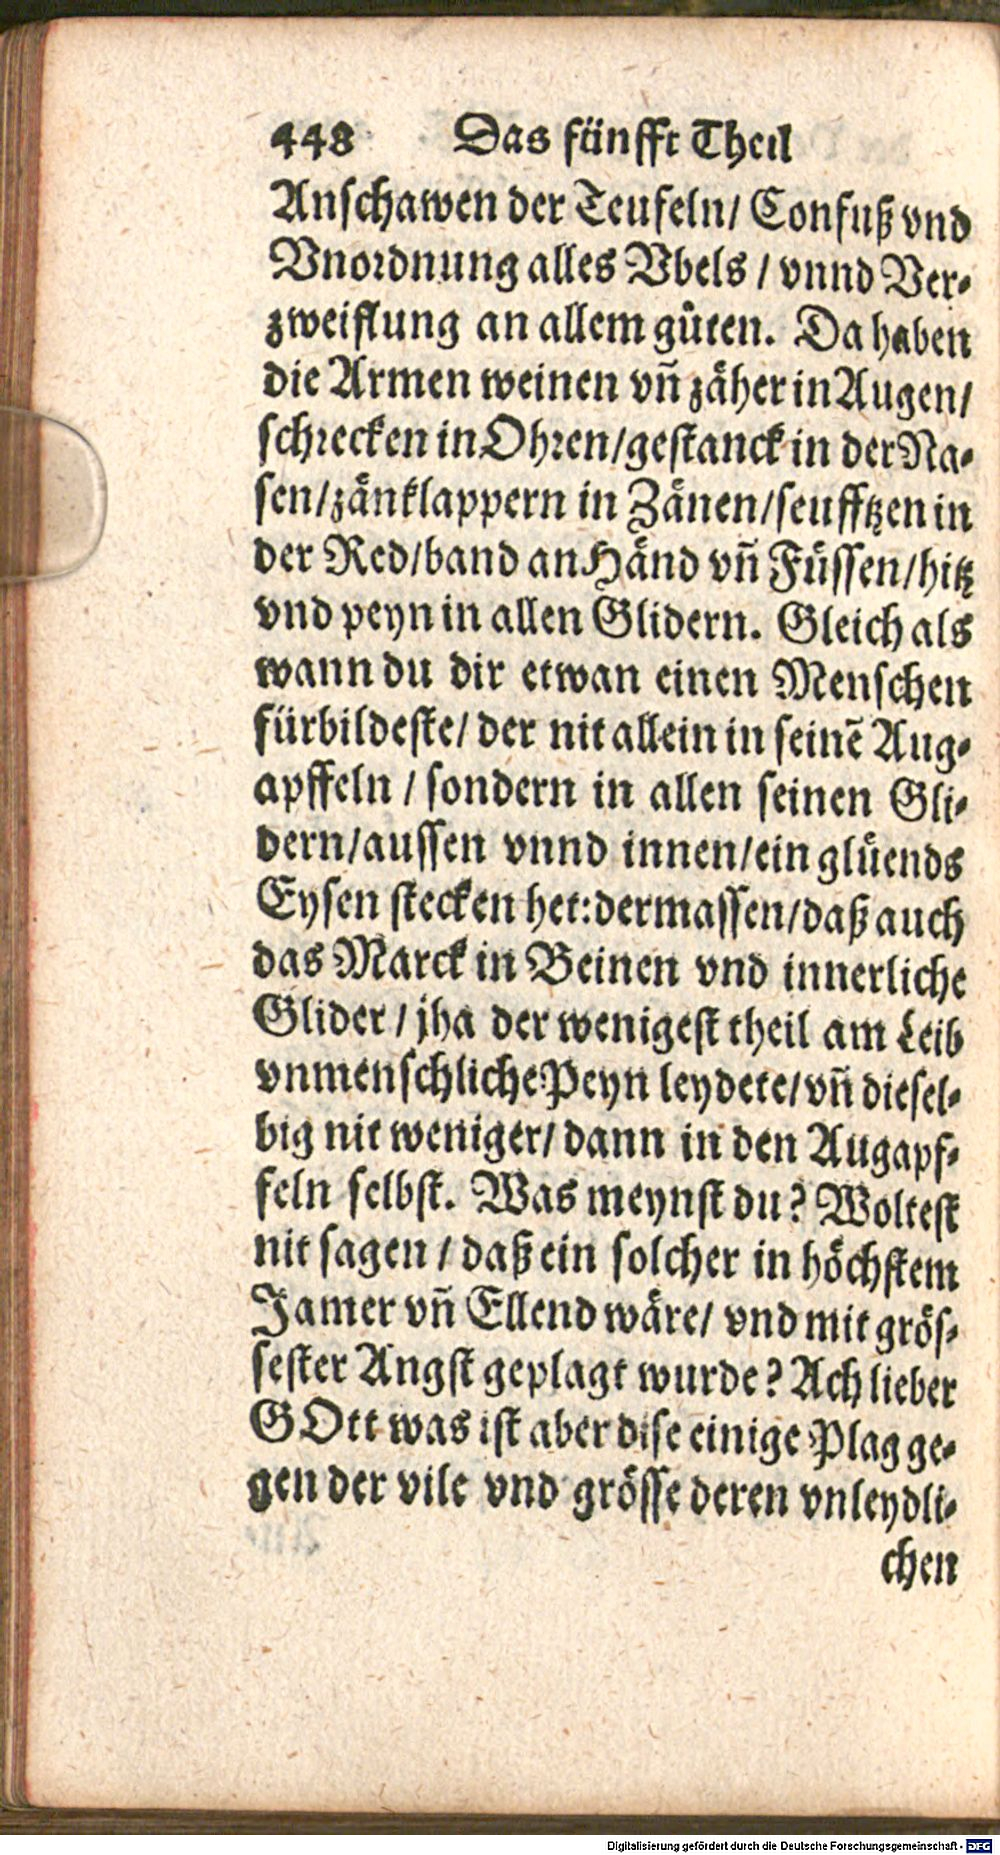 448 Das fünfft Theil
Anschawen der Teufeln/ Confuß vnd
Vnordnung alles Vbels / vnnd Ver-
zweiflung an allem gůten. Da haben
die Armen weinen vñ zäher in Augen/
schrecken in Ohren/gestanck in der Na-
sen/zänklappern in Zänen/seufftzen in
der Red/band an Händ vñ Füssen/hitz
vnd peyn in allen Glidern. Gleich als
wann du dir etwan einen Menschen
fürbildeste/ der nit allein in seinē Aug-
apffeln / sondern in allen seinen Gli-
dern/aussen vnnd innen/ein glüends
Eysen stecken het:dermassen/daß auch
das Marck in Beinen vnd innerliche
Glider / jha der wenigest theil am Leib
vnmenschliche Peyn leydete/vñ diesel-
big nit weniger/ dann in den Augapf-
feln selbst. Was meynst du? Woltest
nit sagen / daß ein solcher in höchstem
Jamer vñ Ellend wäre/ vnd mit grös-
sester Angst geplagt wurde? Ach lieber
GOtt was ist aber dise einige Plag ge-
gen der vile vnd grösse deren vnleydli-
chen
Digitalisierung gefördert durch die Deutsche Forschungsgemeinschaft - DFG